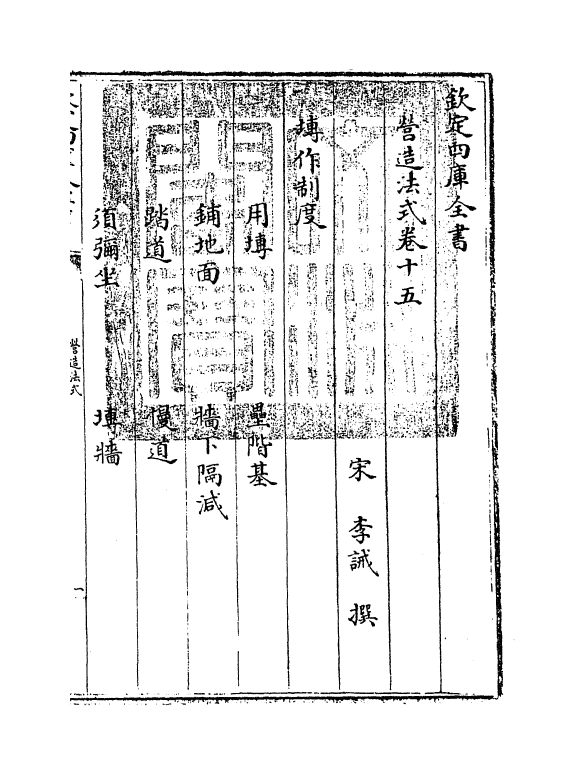 欽定四庫全書
營造法式卷十五
宋 李誡 撰
塼作制度
用塼 壘階基
鋪地面 牆下隔減
踏道 慢道
須彌坐 塼牆
營造法式
一